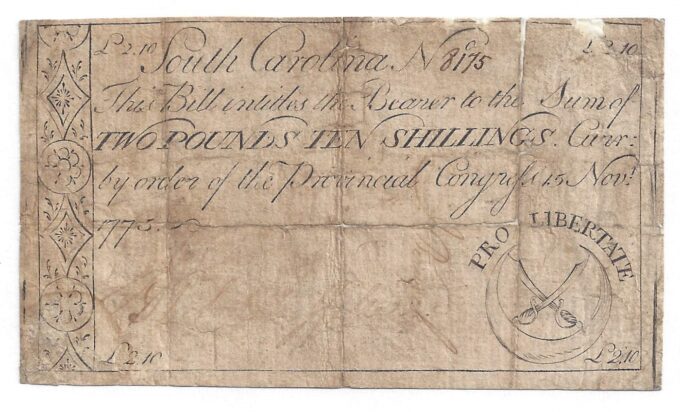 £2.10 £2.10
South Carolina No 8175
This Bill intitles the Bearer to the Sum of
TWO POUNDS TEN SHILLINGS. Curr:
by order of the Provincial Congress 15 Novr.
1775.
PRO LIBERTATE
£2.10 £2.10